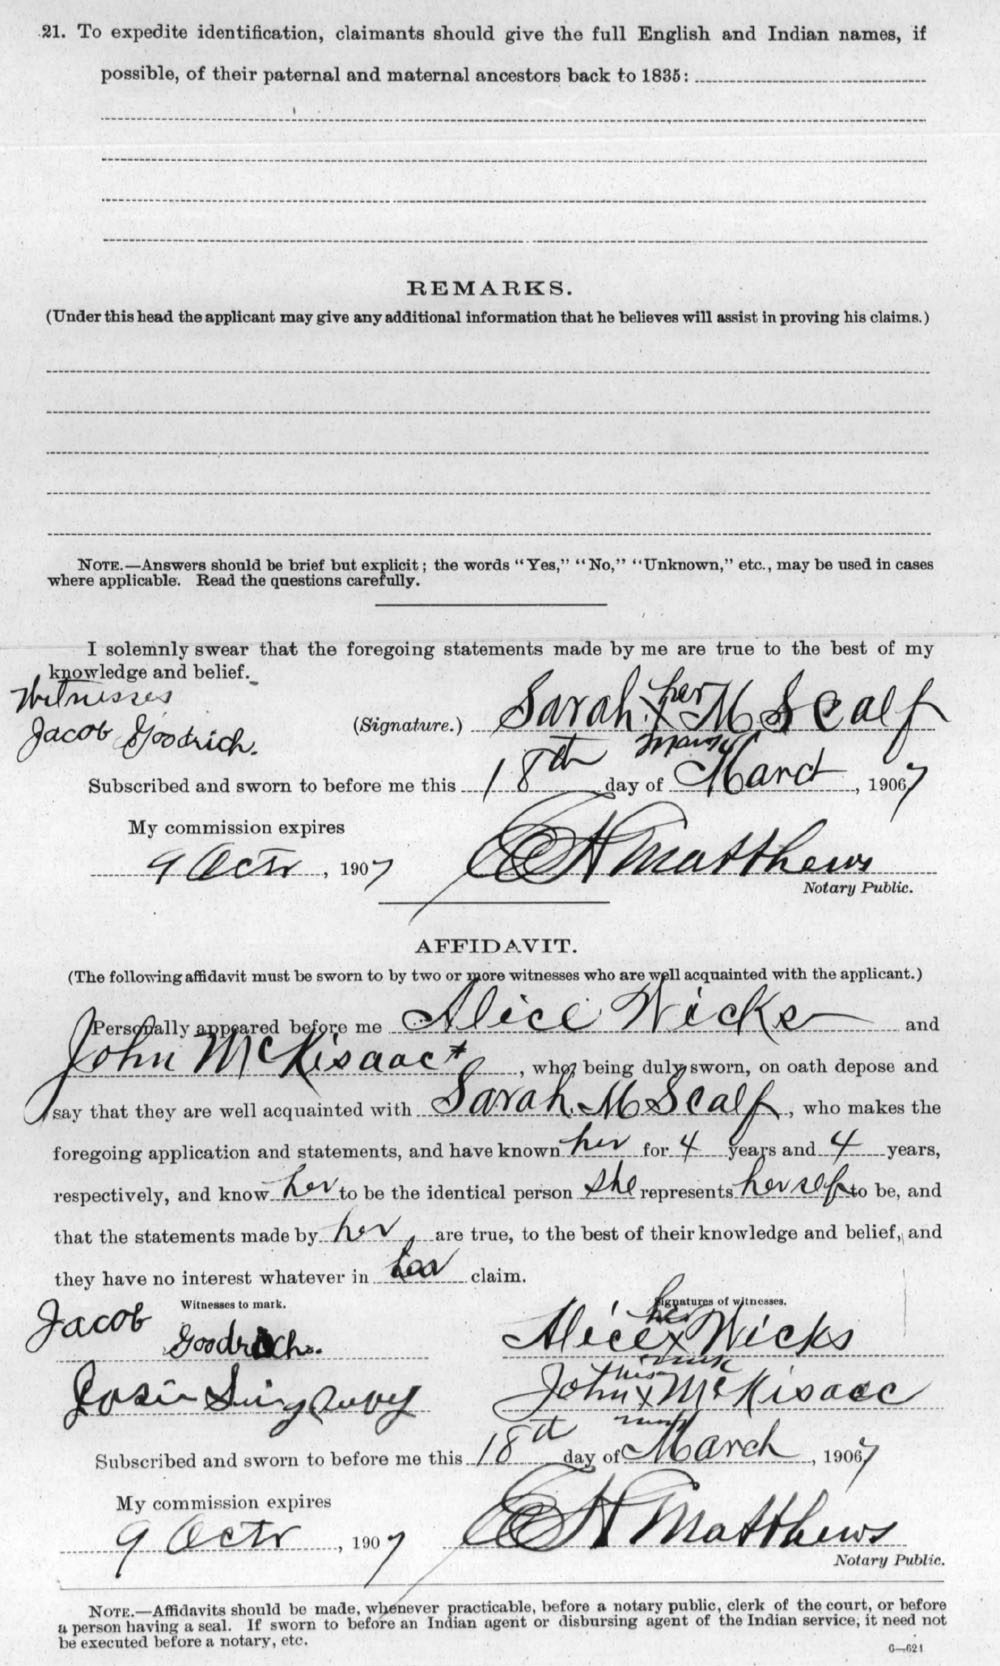 21. To expedite identification, claimants should give the full English and Indian names, if
possible, of their paternal and maternal ancestors back to 1835:
REMARKS.
(Under this head the applicant may give any additional information that he believes will assist in proving his claims.)
NOTE.—Answers should be brief but explicit; the words "Yes," "No," "Unknown," etc., may be used in cases
where applicable. Read the questions carefully.
I solemnly swear that the foregoing statements made by me are true to the best of my
knowledge and belief.
Witnesses
Jacob Goodrich.
(Signature.) Sarah her x mark M Scalf
Subscribed and sworn to before me this 18th day of March, 1907
My commission expires
9 Octr, 1907
E H Matthews
Notary Public.
AFFIDAVIT.
(The following affidavit must be sworn to by two or more witnesses who are well acquainted with the applicant.)
Personally appeared before me Alice Wicks and
John McKisaac, who, being duly sworn, on oath depose and
say that they are well acquainted with Sarah M Scalf, who makes the
foregoing application and statements, and have known her for 4 years and 4 years,
respectively, and know her to be the identical person she represents herself to be, and
that the statements made by her are true, to the best of their knowledge and belief, and
they have no interest whatever in her claim.
Witnesses to mark. Signatures of witnesses.
Jacob Goodrich. Alice her x mark Wicks
John his x mark McKisaac
Subscribed and sworn to before me this 18th day of March, 1907
My commission expires
9 Octr, 1907
E H Matthews
Notary Public.
NOTE.—Affidavits should be made, whenever practicable, before a notary public, clerk of the court, or before
a person having a seal. If sworn to before an Indian agent or disbursing agent of the Indian service, it need not
be executed before a notary, etc.
6—621